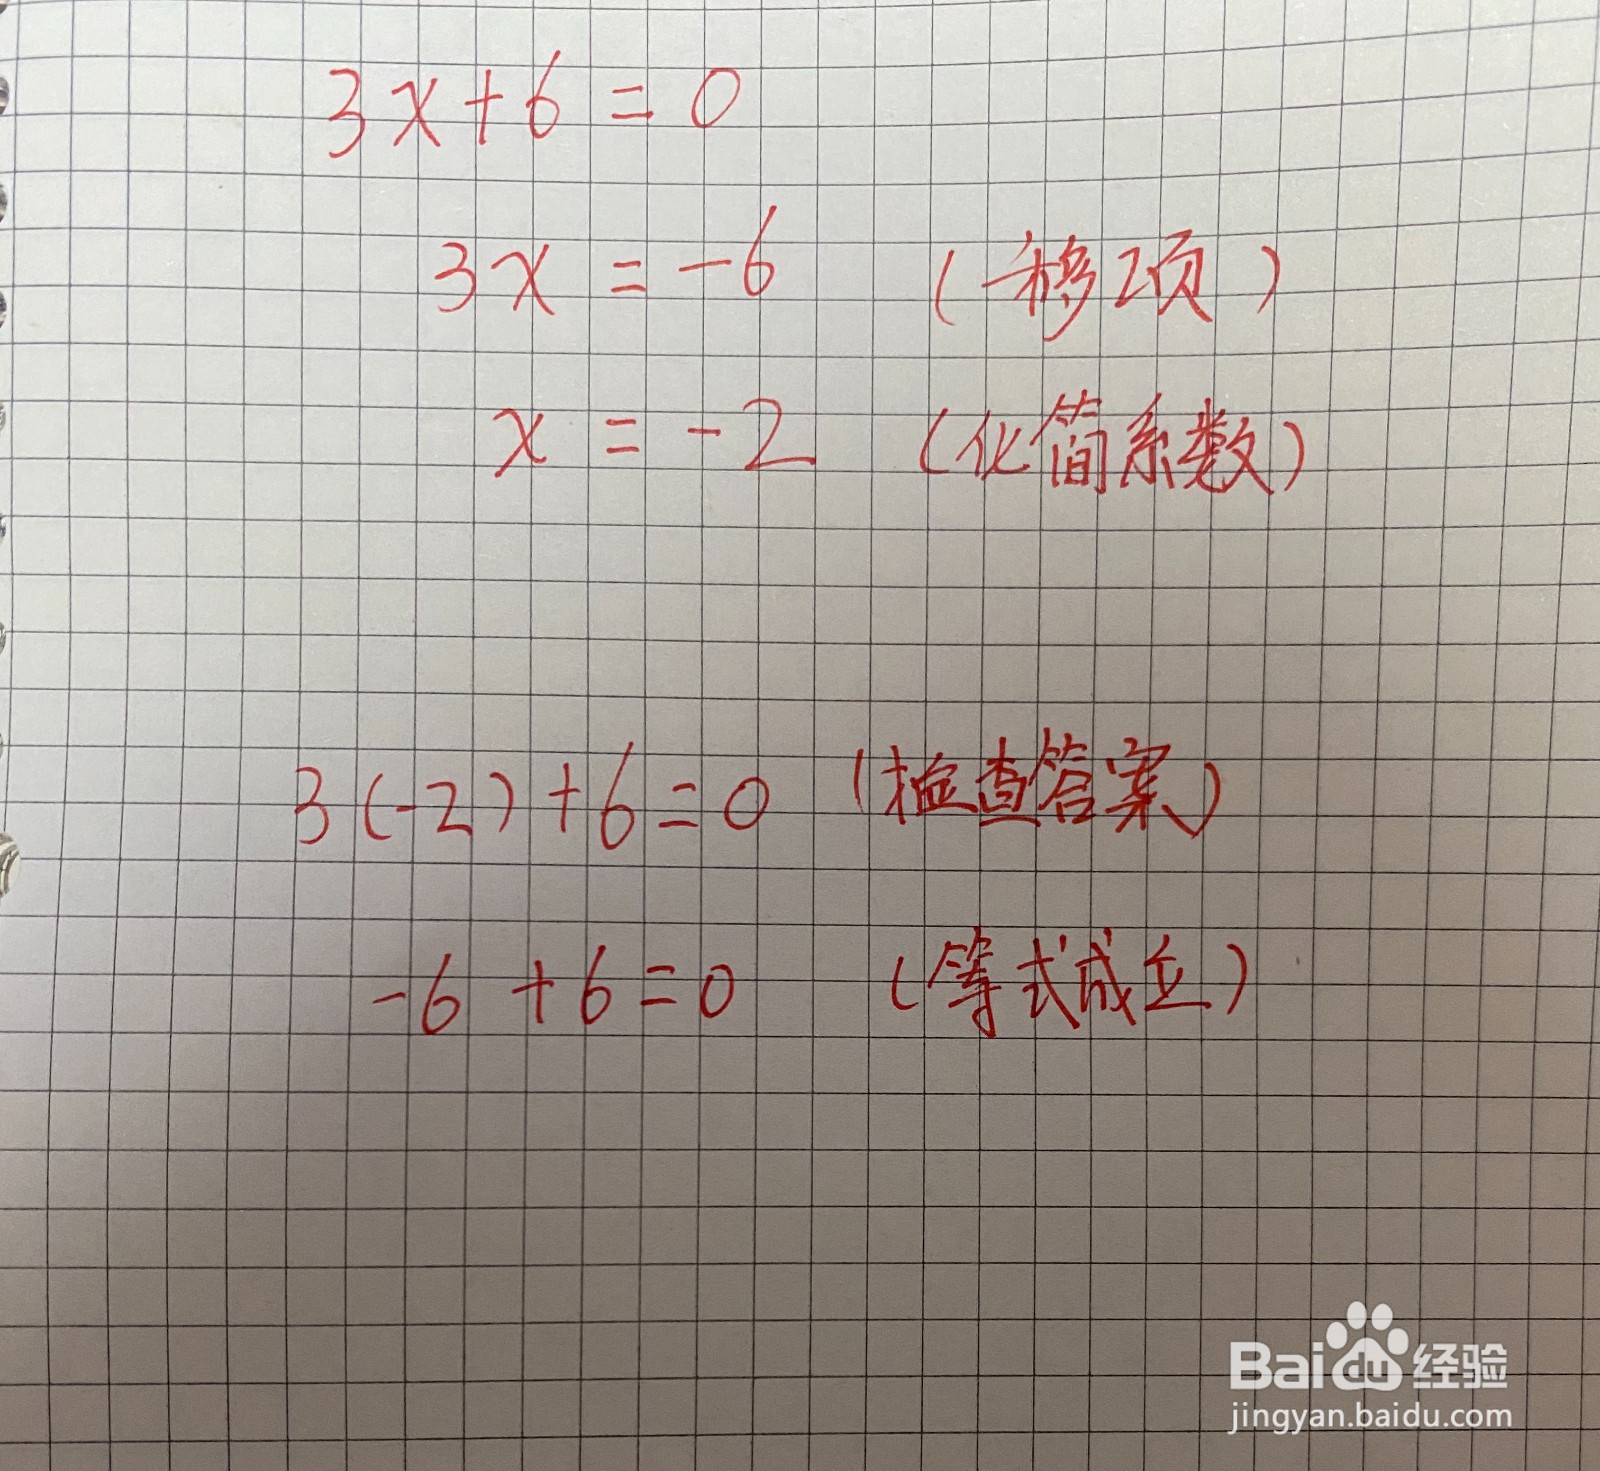 3x+6=0
3x=-6 (移项)
x=-2 (化简系数)
3(-2)+6=0 (检查答案)
-6+6=0 (等式成立)
Baidu经验
jingyan.baidu.com